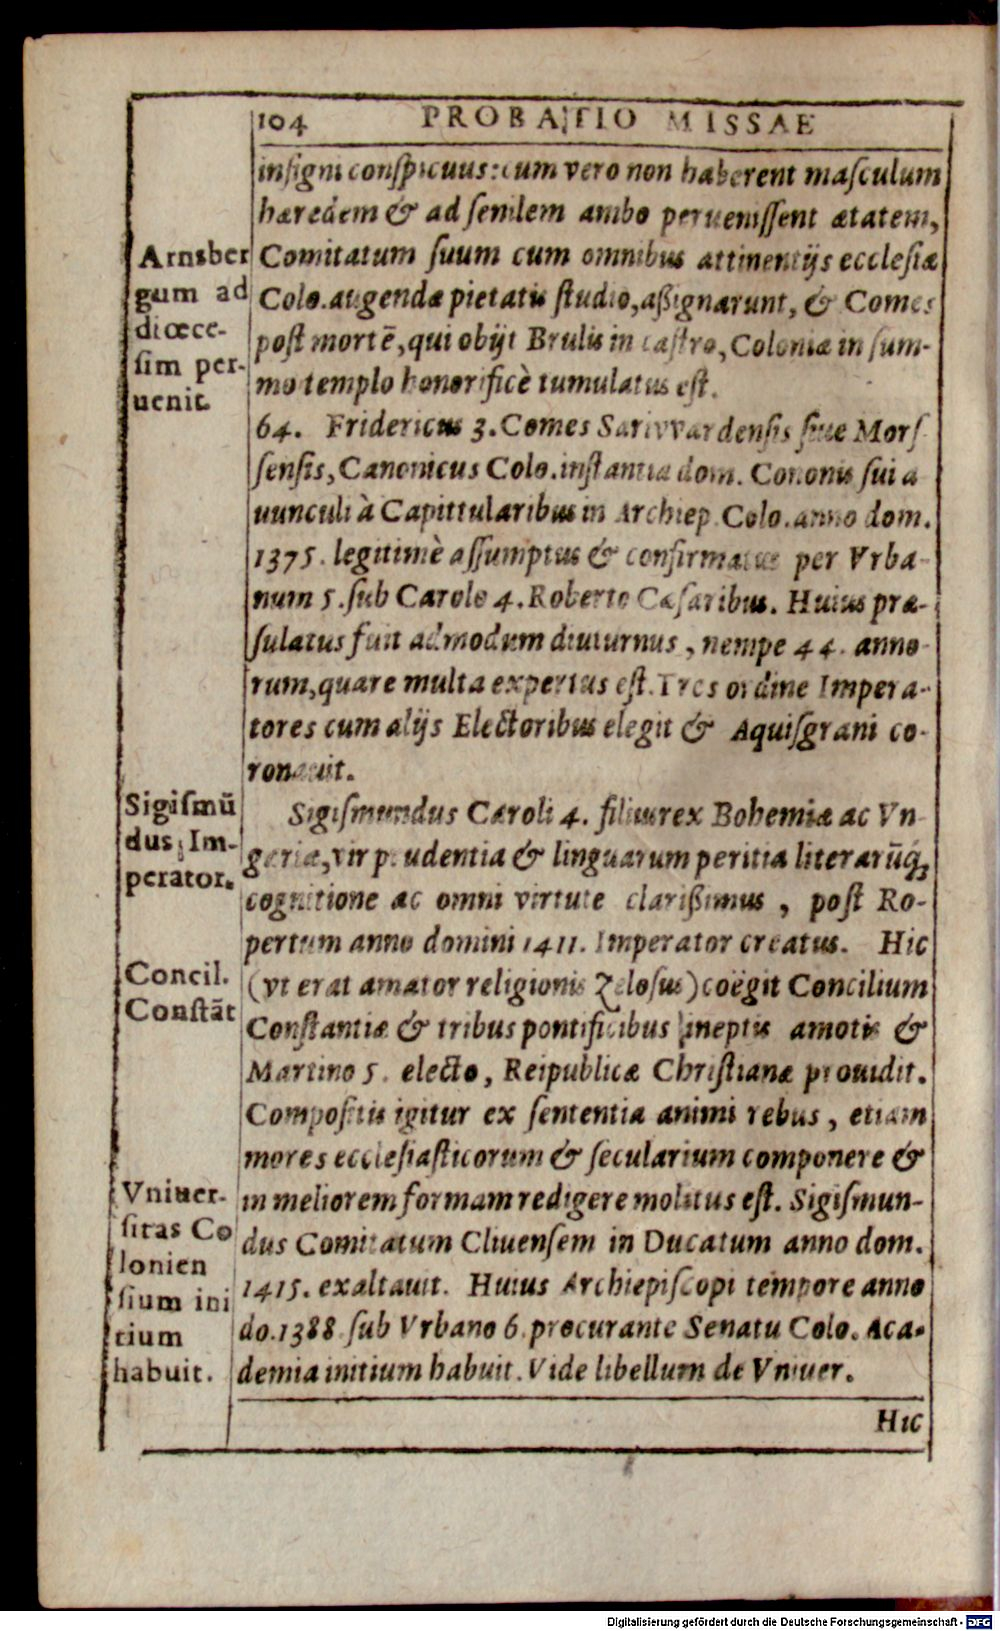 104 PROBATIO MISSAE
insigni conspicuus: cum vero non haberent masculum
hæredem & ad senilem ambo peruenissent ætatem,
Comitatum suum cum omnibus attinentijs ecclesiæ
Colo. augendæ pietatis studio, aßignarunt, & Comes
post mortē, qui obijt Brulis in castro, Coloniæ in sum-
mo templo honorificè tumulatus est.
Arnsber
gum ad
diœce-
sim per-
uenit.
64. Fridericus 3. Comes Sarivvardensis siue Mors
sensis, Canonicus Colo. instantia dom. Cononis sui a
uunculi à Capittularibus in Archiep. Colo. anno dom.
1375. legitimè assumptus & confirmatus per Vrba-
num 5. sub Carolo 4. Roberto Cæsaribus. Huius præ-
sulatus fuit admodum diuturnus, nempe 44. anno-
rum, quare multa expertus est. Tres ordine Impera-
tores cum alijs Electoribus elegit & Aquisgrani co-
ronauit.
Sigismundus Caroli 4. filius rex Bohemiæ ac Vn-
geriæ, vir prudentia & linguarum peritia literarūq́;
cognitione ac omni virtute clarißimus, post Ro-
pertum anno domini 1411. Imperator creatus. Hic
(vt erat amator religionis Zelosus) coëgit Concilium
Constantiæ & tribus pontificibus ineptis amotis &
Martino 5. electo, Reipublicæ Christianæ prouidit.
Compositis igitur ex sententia animi rebus, etiam
mores ecclesiasticorum & secularium componere &
in meliorem formam redigere molitus est. Sigismun-
dus Comitatum Cliuensem in Ducatum anno dom.
1415. exaltauit. Huius Archiepiscopi tempore anno
do. 1388. sub Vrbano 6. procurante Senatu Colo. Aca-
demia initium habuit. Vide libellum de Vniuer.
Sigismū
dus Im-
perator.
Concil.
Constāt
Vniuer-
sitas Co
lonien
sium ini
tium
habuit.
Hic
Digitalisierung gefördert durch die Deutsche Forschungsgemeinschaft - DFG